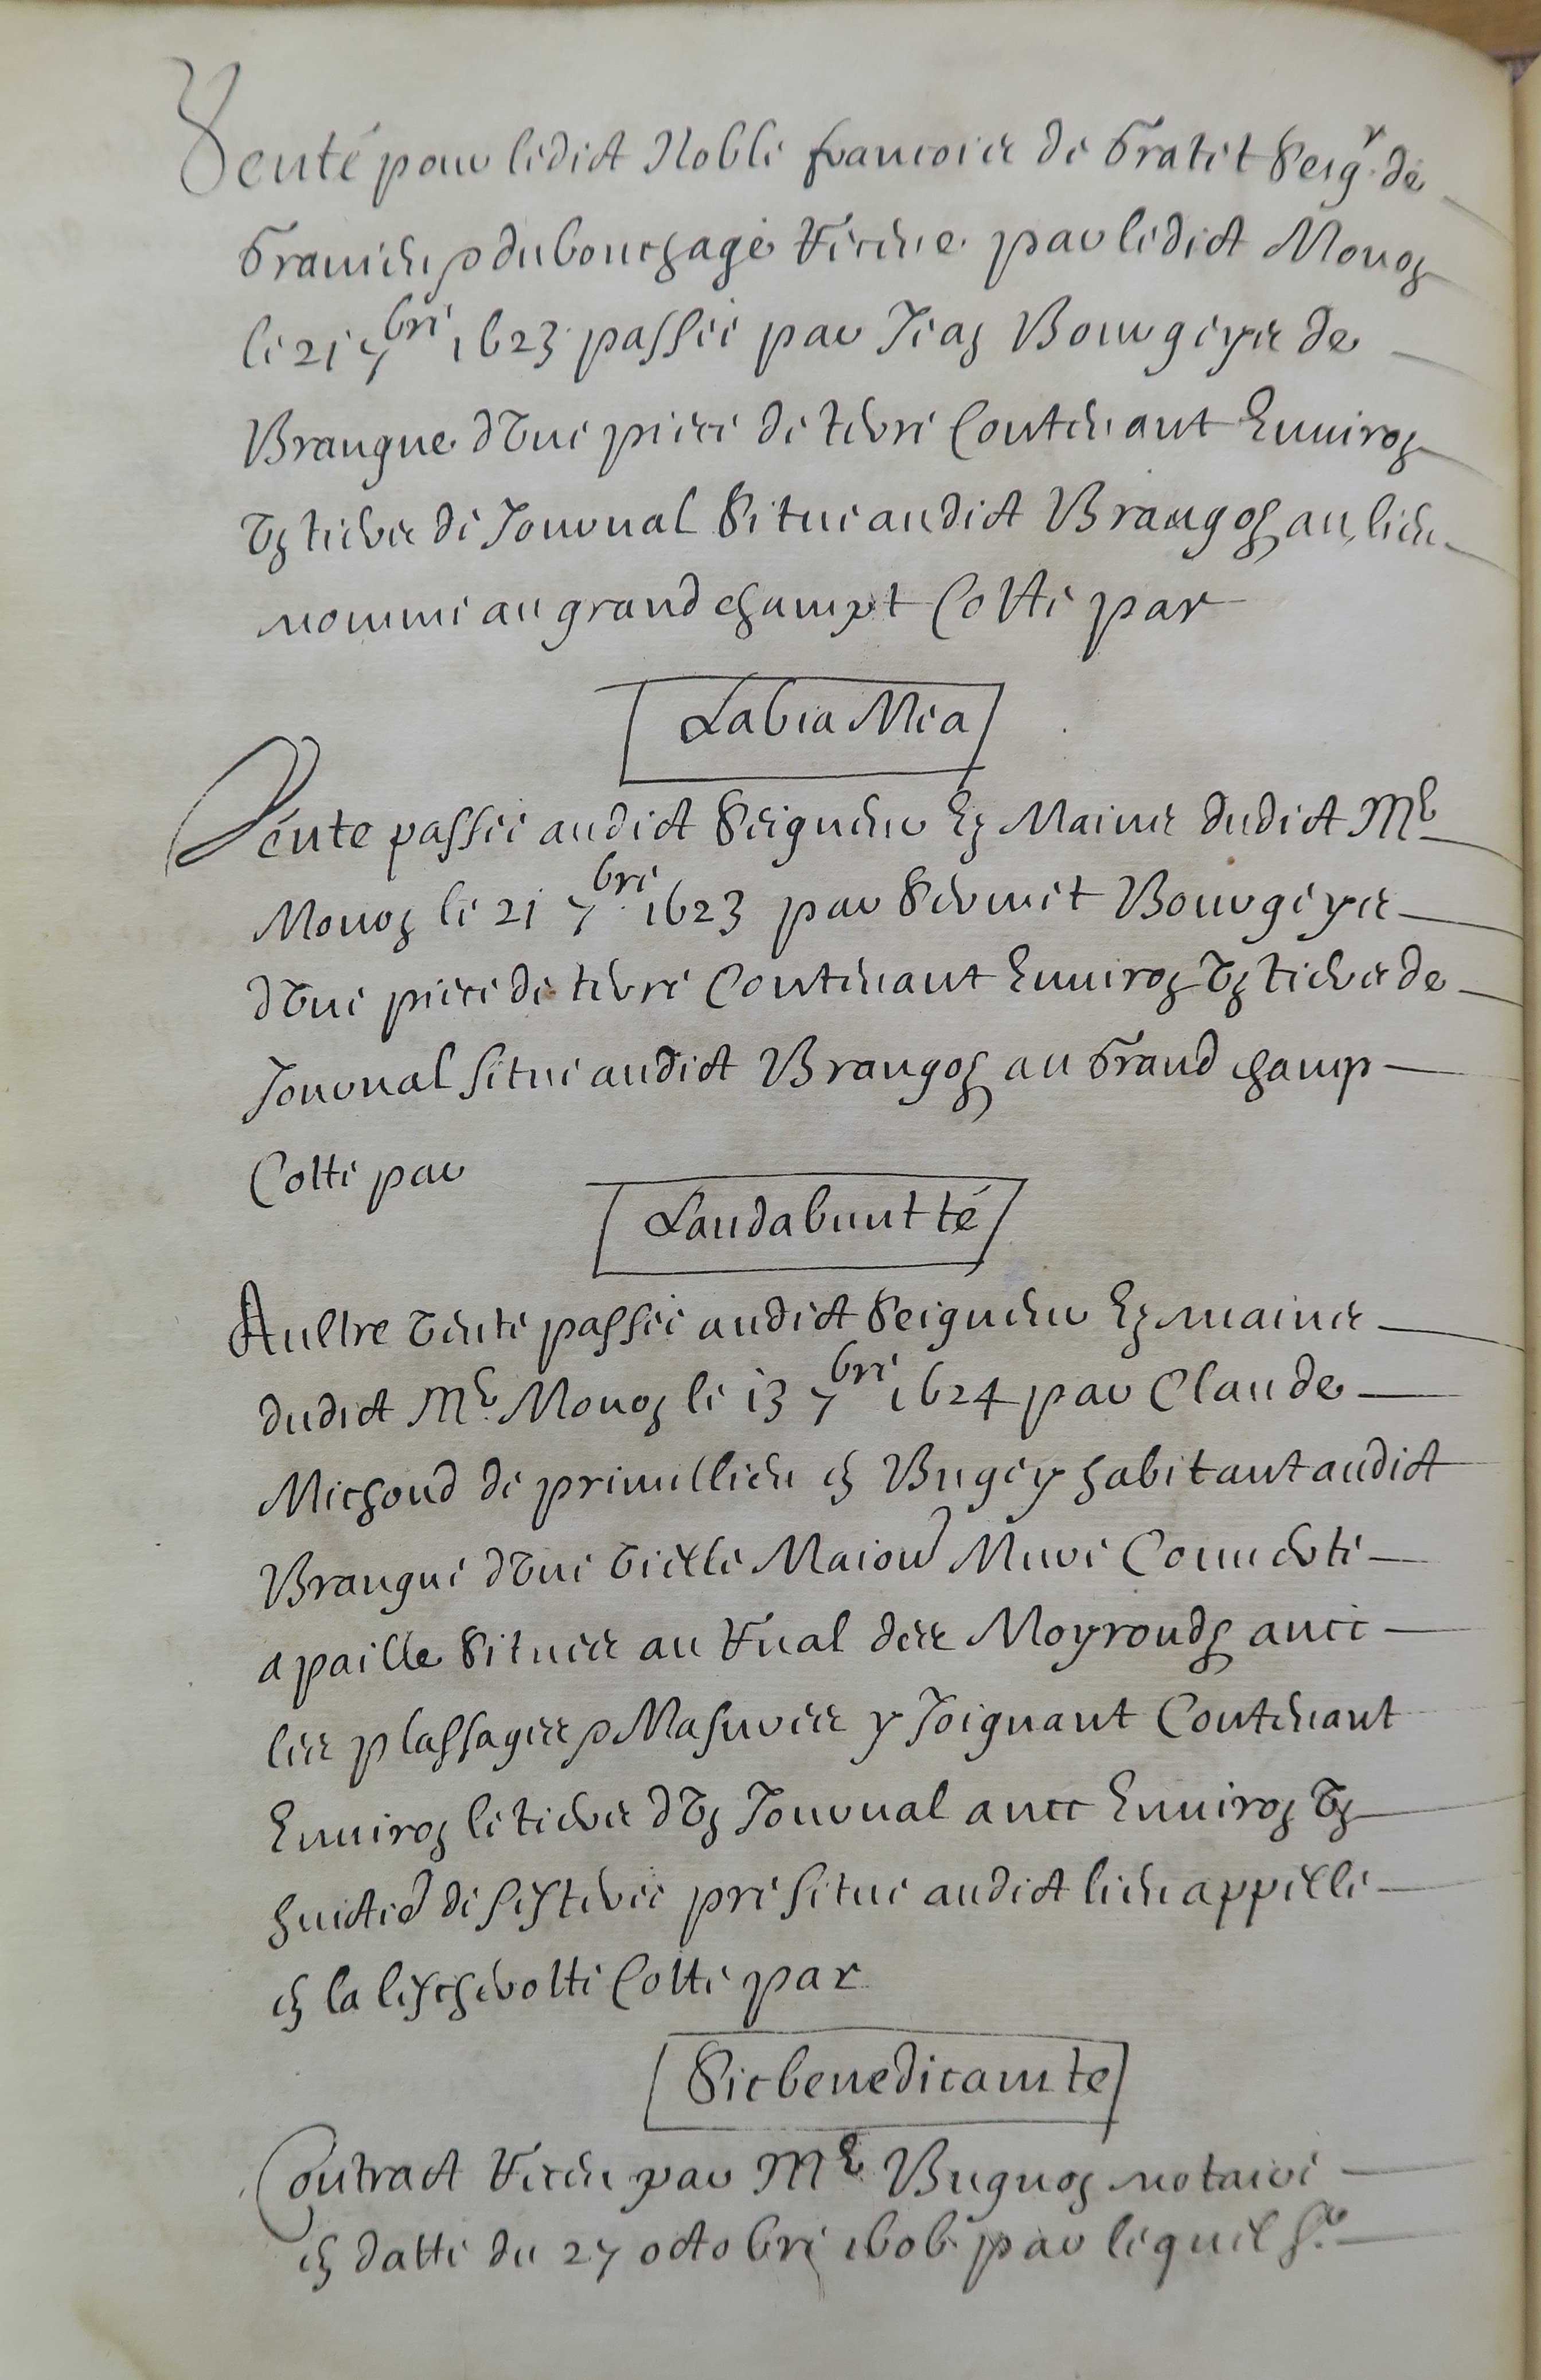 Vente pour ledict Noble francois de Gratet Seigr. de
Granieu & du bouchage Receue par ledict Monon
le 21 7bre 1623 passee par Jean Bourgeys de
Brangue d'une piece de terre Contenant Environ
un tiers de Journal Situe audict Brangos au lieu
nomme au grand champt Cotte par
Labia Mea
Vente passee audict Seigneur Es Mains dudict Me
Monon le 21 7bre 1623 par Sermet Bourgeys
d'une piece de terre Contenant Environ un tiers de
Journal situe audict Brangos au Grand champ
Cotte par
Laudabunt té
Aultre vente passee audict Seigneur Es mains
dudict Me. Monon le 13 7bre 1624 par Claude
Michoud de primellieu en Bugey habitant audict
Brangue d'une vielle Maison Mure Couverte
a paille Situee au Rual des Moyrouds avec
les plassages & Masures y Joignant Contenant
Environ le tiers d'un Journal avec Environ un
huictie de sesteree pre situe audict lieu appelle
en la lescherotte Cotte par
Sic benedicam te
Contract Receu par Me Bugnon notaire
en datte du 27 octobre 1606 par lequel Sr.